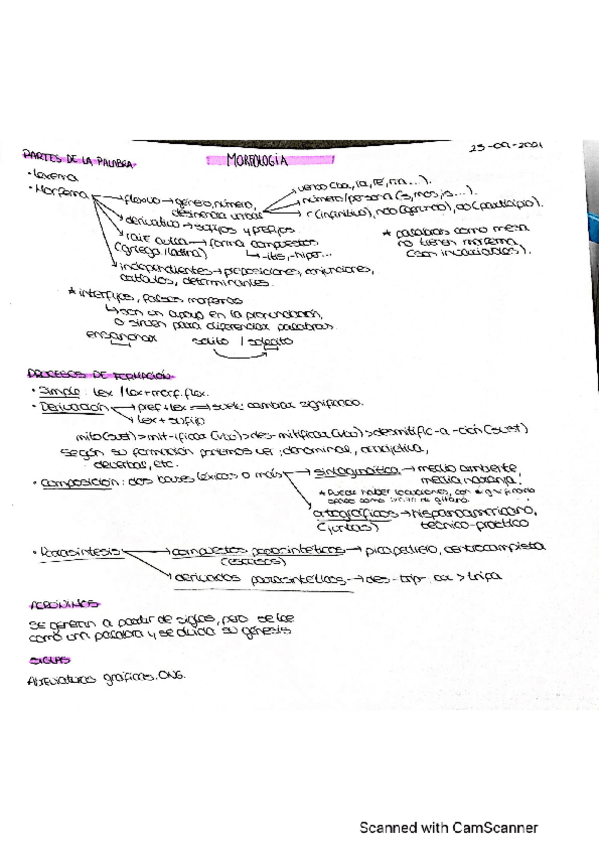 23-09-2021
PARTES DE LA PALABRA
MORFOLOGÍA
· Lexema
· Morfema → flexivo → género, número,
desinencia verbal
verbo (ba, ia, ré, ra...).
número/persona (s, mos, is...).
r (infinitivo), ndo (gerundio), do (participio).
derivativo → sufijos y prefijos.
raíz culta → forma compuestos
(griega/latina) → -itis, -hiper...
* palabras como mesa
no tienen morfema
(son invariables).
independientes → preposiciones, conjunciones,
artículos, determinantes.
* interfijos, falsos morfemas
son un apoyo en la pronunciación,
o sirven para diferenciar palabras.
ensanchar solito / solecito
PROCESOS DE FORMACIÓN
· Simple: lex / lex+morf. flex.
· Derivación → pref+lex → suele cambiar significado.
lex + sufijo
mito (sust) > mit-ificar (vbo) > des-mitificar (vbo) > desmitific-a-ción (sust)
Según su formación podemos ver: denominal, adjetival,
deverbal, etc.
· Composición: dos bases léxicas o más → sintagmática → medio ambiente,
media naranja.
* Puede haber locuciones, con significado
ortográficos → hispanoamericano,
(juntas) técnico-práctico
· Parasíntesis → compuestos parasintéticos → picapedrero, centrocampista
derivados parasintéticos → des-trip-ar > tripa
ACRÓNIMOS
Se generan a partir de siglas, pero se lee
como una palabra y se olvida su génesis
SIGLAS
Abreviaturas gráficas. ONG.
Scanned with CamScanner